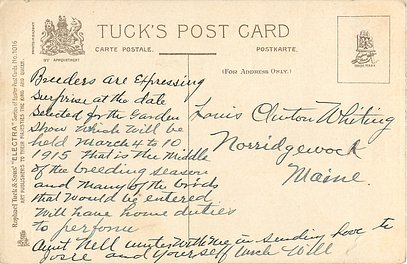 TUCK'S POST CARD
CARTE POSTALE.
POSTKARTE.
BY APPOINTMENT
(FOR ADDRESS ONLY.)
Raphael Tuck & Sons' "ELECTRA"
ART PUBLISHERS TO THEIR MAJESTIES THE KING AND QUEEN.
Breeders are Expressing
Surprise at the date
Selected for the Garden
Show which will be
held March 4 to 10
1915 that is the Middle
of the breeding season
and many of the birds
that would be entered
Will have home duties
to perform
Aunt Nell unites with me in sending love to
Josie and yourself Uncle Will
Louis Clinton Whiting
Norridgewock
Maine.